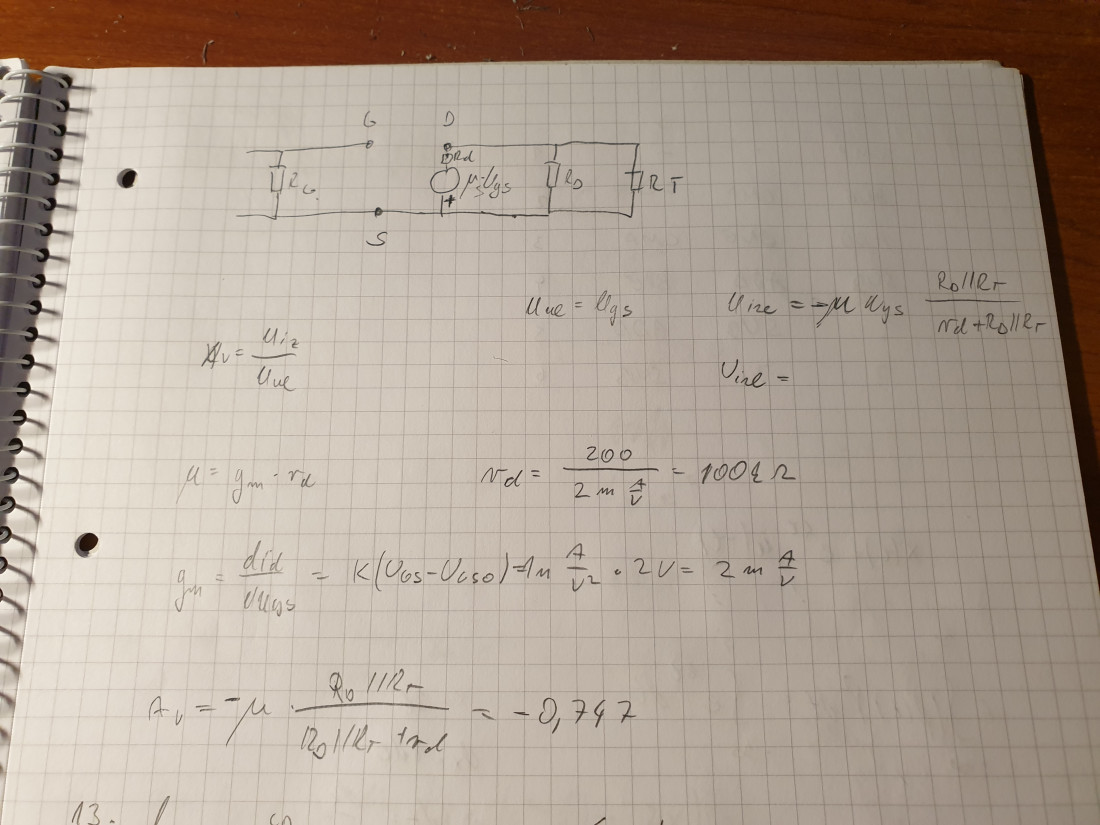 G D
Rd
RG μ·Ugs RD RT
+
S
uul = ugs uizl = -μ ugs RD||RT / rd + RD||RT
Av = uiz / uul
Uizl =
μ = gm · rd rd = 200 / 2 m A/V = 100 k Ω
gm = did / dugs = K(UGS-UGSO) = 1m A/V² · 2V = 2 m A/V
Av = -μ · RD||RT / RD||RT + rd = -0,747
13.